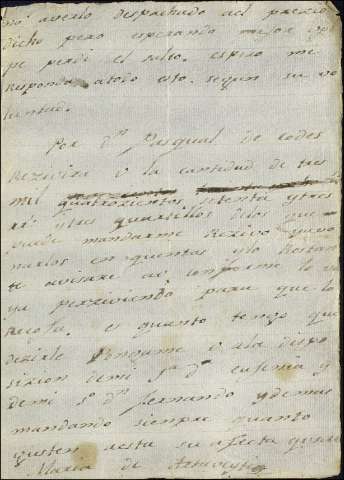 averlo despachado del prezio
dicho pero esperando mejor
pe perdi el salto. espero me
responda a todo esto. segun su vo
luntad.
Por dn Pasqual de rodes
Rezivira v la cantidad de tres
mil
quatrozientos setenta y tres
rs y tres quartillos delos que
puede mandarme Rezivo
narlos en quentas y lo Restan
te avisare a v conforme lo va
ya perziviendo para que lo
Recoja. es quanto tengo que
dezirle Pongame v a la dispo
sizion demi sa da eufemia y
demi sr dn fernando y demas
mandando siempre quanto
gusten a esta su afecta
Maria de